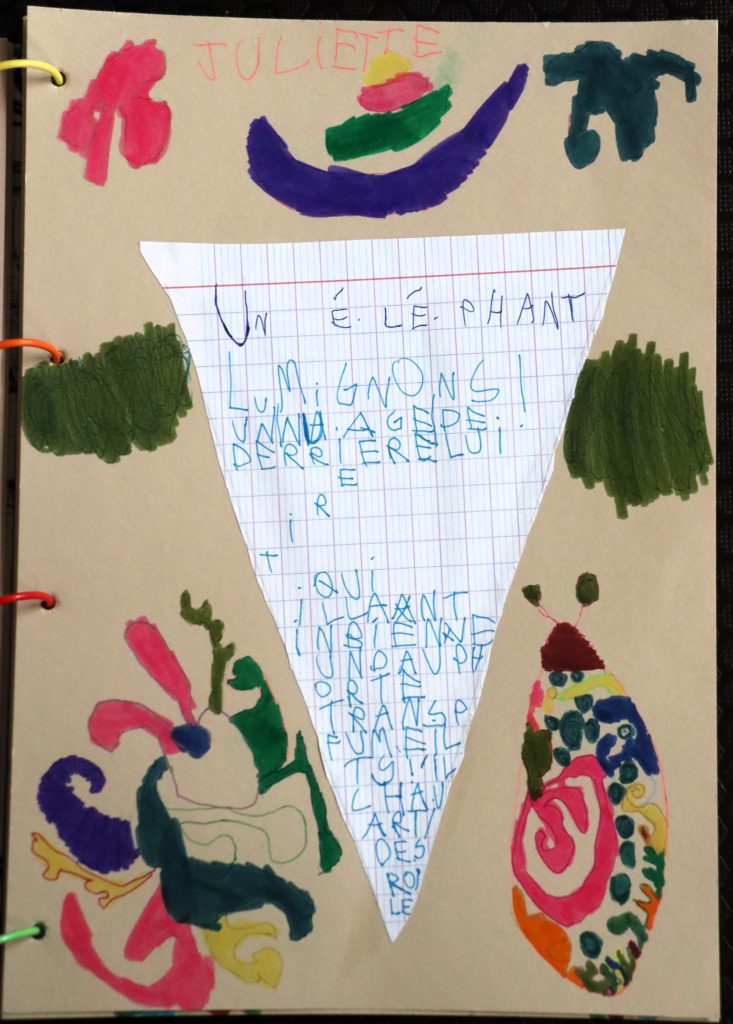 JULIETTE
UN É.LÉ.PHANT
LUMiGNONS!
UNNU.AGEDE.
DERRIERELUi.
E
R
i
T
.QUi
iLUAANT
iNBiENNE
UNDAUPH
ORTE
TRANSP
FUMETL
TSi'iL
CHAU
ARTi
DES
ROi
LE